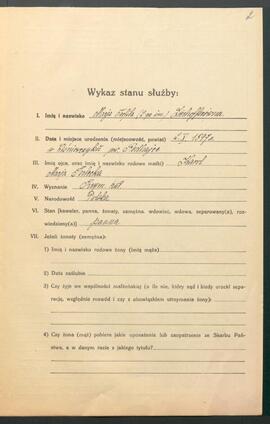 2
Wykaz stanu służby:
I. Imię i nazwisko Marja Zofia (2-ga im.)
II. Data i miejsce urodzenia (miejscowość, powiat) 2. X. 1897 r.
w pow. Podhajce
III. Imię ojca, oraz imię i nazwisko rodowe matki) Karol
Marja
IV. Wyznanie Rzym. kat.
V. Narodowość Polska
VI. Stan (kawaler, panna, żonaty, zamężna, wdowiec, wdowa, separowany(a), roz-
wiedziony(a) panna
VII. Jeżeli żonaty (zamężna):
1) Imię i nazwisko rodowe żony (imię męża)
2) Data zaślubin
3) Czy żyje we wspólności małżeńskiej (o ile nie, który sąd i kiedy orzekł sepa-
rację, względnie rozwód i czy z obowiązkiem utrzymania żony):
4) Czy żona (mąż) pobiera jakie uposażenie lub zaopatrzenie ze Skarbu Pań-
stwa, a w danym razie z jakiego tytułu?